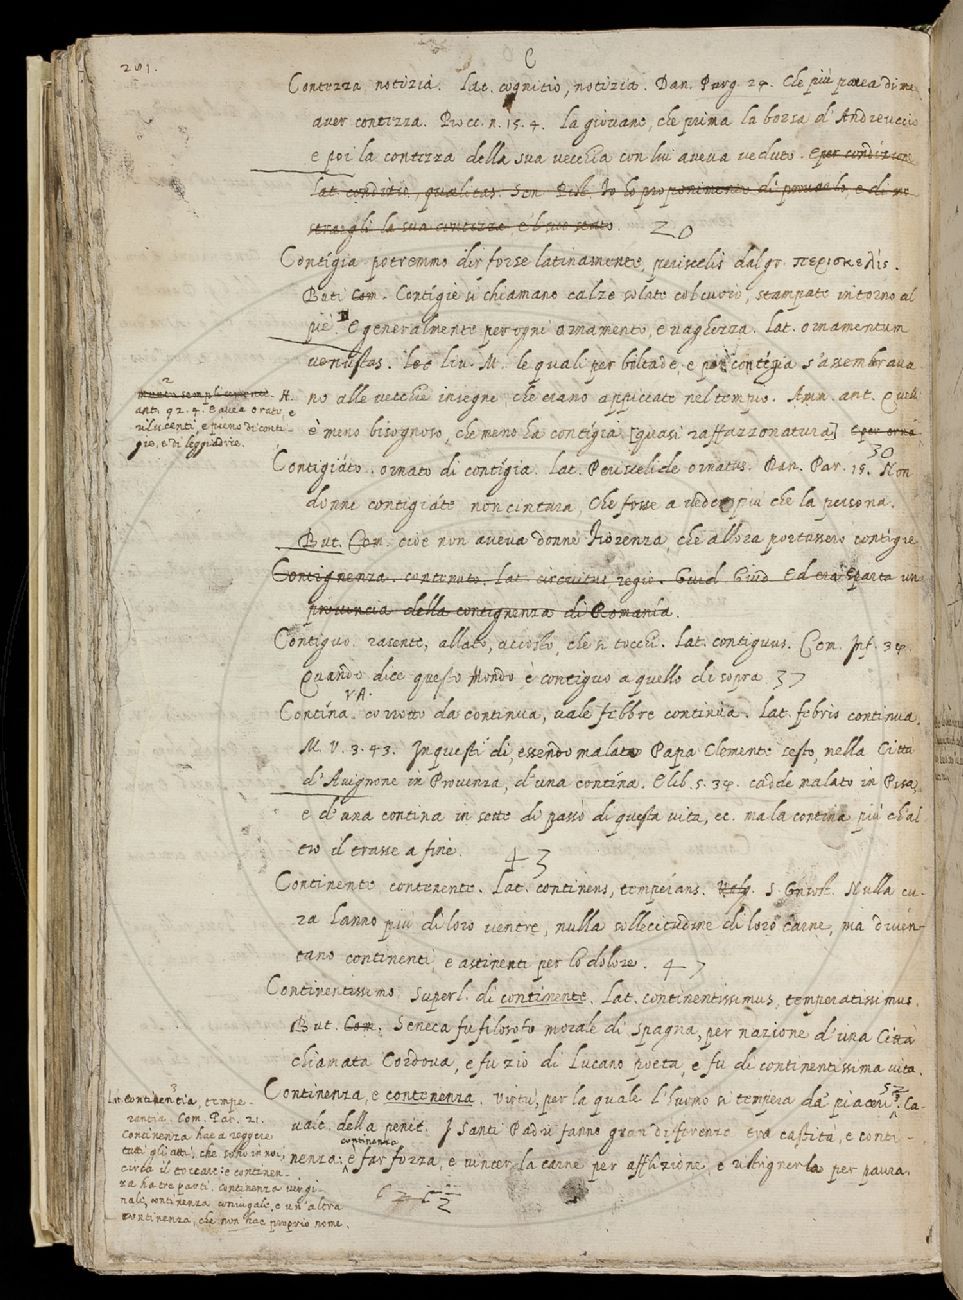 291.
C
Contezza notizia. Lat. cognitio, notitia. Dan. Purg. 24. Che più parea di me
aver contezza. Bocc. n. 15. 4. La giovane, che prima la borsa d'Andreuccio
e poi la contezza della sua vecchia con lui aveva veduto. e per condizione
Lat. conditio, qualitas. Sen. Pist. Io ho proponimento di provarlo, e di mo
strargli la sua contezza e 'l suo senno. 20
Contígia potremmo dir forse latinamente, periscelis dal gr. περισκελίς.
Buti Com. Contigie si chiamano calze solate col cuoio, stampate intorno al
piè. E generalmente per ogni ornamento, e vaghezza. Lat. ornamentum
venustas. Liv. M. le quali per biltade, e per contígia s'assembrava
no alle vecchie insegne, che erano appiccate nel tempio. Amm. ant. Quelli
è meno bisognoso, che meno ha contígia [quasi raffazzonatura] E per orna
30
Contigiáto. ornato di contígia. Lat. Periscelide ornatus. Dan. Par. 15. Non
donne contigiáte non cintura, Che fosse a veder più che la persona.
But. Com. cioè non aveva donne Fiorenza, che allora portassero contigie
Contignenza. contenuto. Lat. circuitus regio. Guid. Giud. Ed era Sparta una
provincia della contignenza di Romanía.
Contiguo. rasente, allato, accosto, che si tocchi. Lat. contiguus. Com. Inf. 34.
Quando dice questo Mondo è contiguo a quello di sopra. 37
VA.
Contína. corrotto da continua, vale febbre continua. Lat. febris continua.
M. V. 3. 43. In questi dì, essendo malato Papa Clemente sesto, nella Città
d'Avignone in Provenza, d'una contína. E lib. 5. 34. cadde malato in Pisa,
e d'una contina in sette dì passò di questa vita, ec. ma la contina più ch'al
tro il trasse a fine. 43
Continente, contenente. Lat. continens, temperans. Volg. S. Grisost. Nulla cu-
ra hanno più di loro ventre, nulla sollecitudine di loro carne, ma diven-
tano continenti, e astinenti per lo dolore. 47
Continentissimo. Superl. di continente. Lat. continentissimus, temperatissimus.
But. Com. Seneca fu filosofo morale di Spagna, per nazione d'una Città
chiamata Cordova, e fu zio di Lucano poeta, e fu di continentissima vita.
52
Continenza, e contenenza. virtù, per la quale l'huomo si tempera da' piaceri. 3. Ca-
valc. della penit. I Santi Padri fanno gran diferenza tra castità, e conti-
nenza: continenza è far forza, e vincer la carne per afflizione, e ristignerla per paura.
2
A.
ant. 92. 4. E avea orato, e
rilucenti, e pieno di conti-
gie, e di leggiadrie.
3
Lat. continentia, tempe-
rantia. Com. Par. 21.
Continenza hae a reggere
tutti gli atti, che sono in noi,
circa il toccare: e continen-
za ha tre parti. continenza virgi-
nale, continenza coniugale, e un'altra
continenza, che non hae proprio nome.